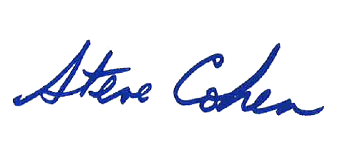 Steve Cohen